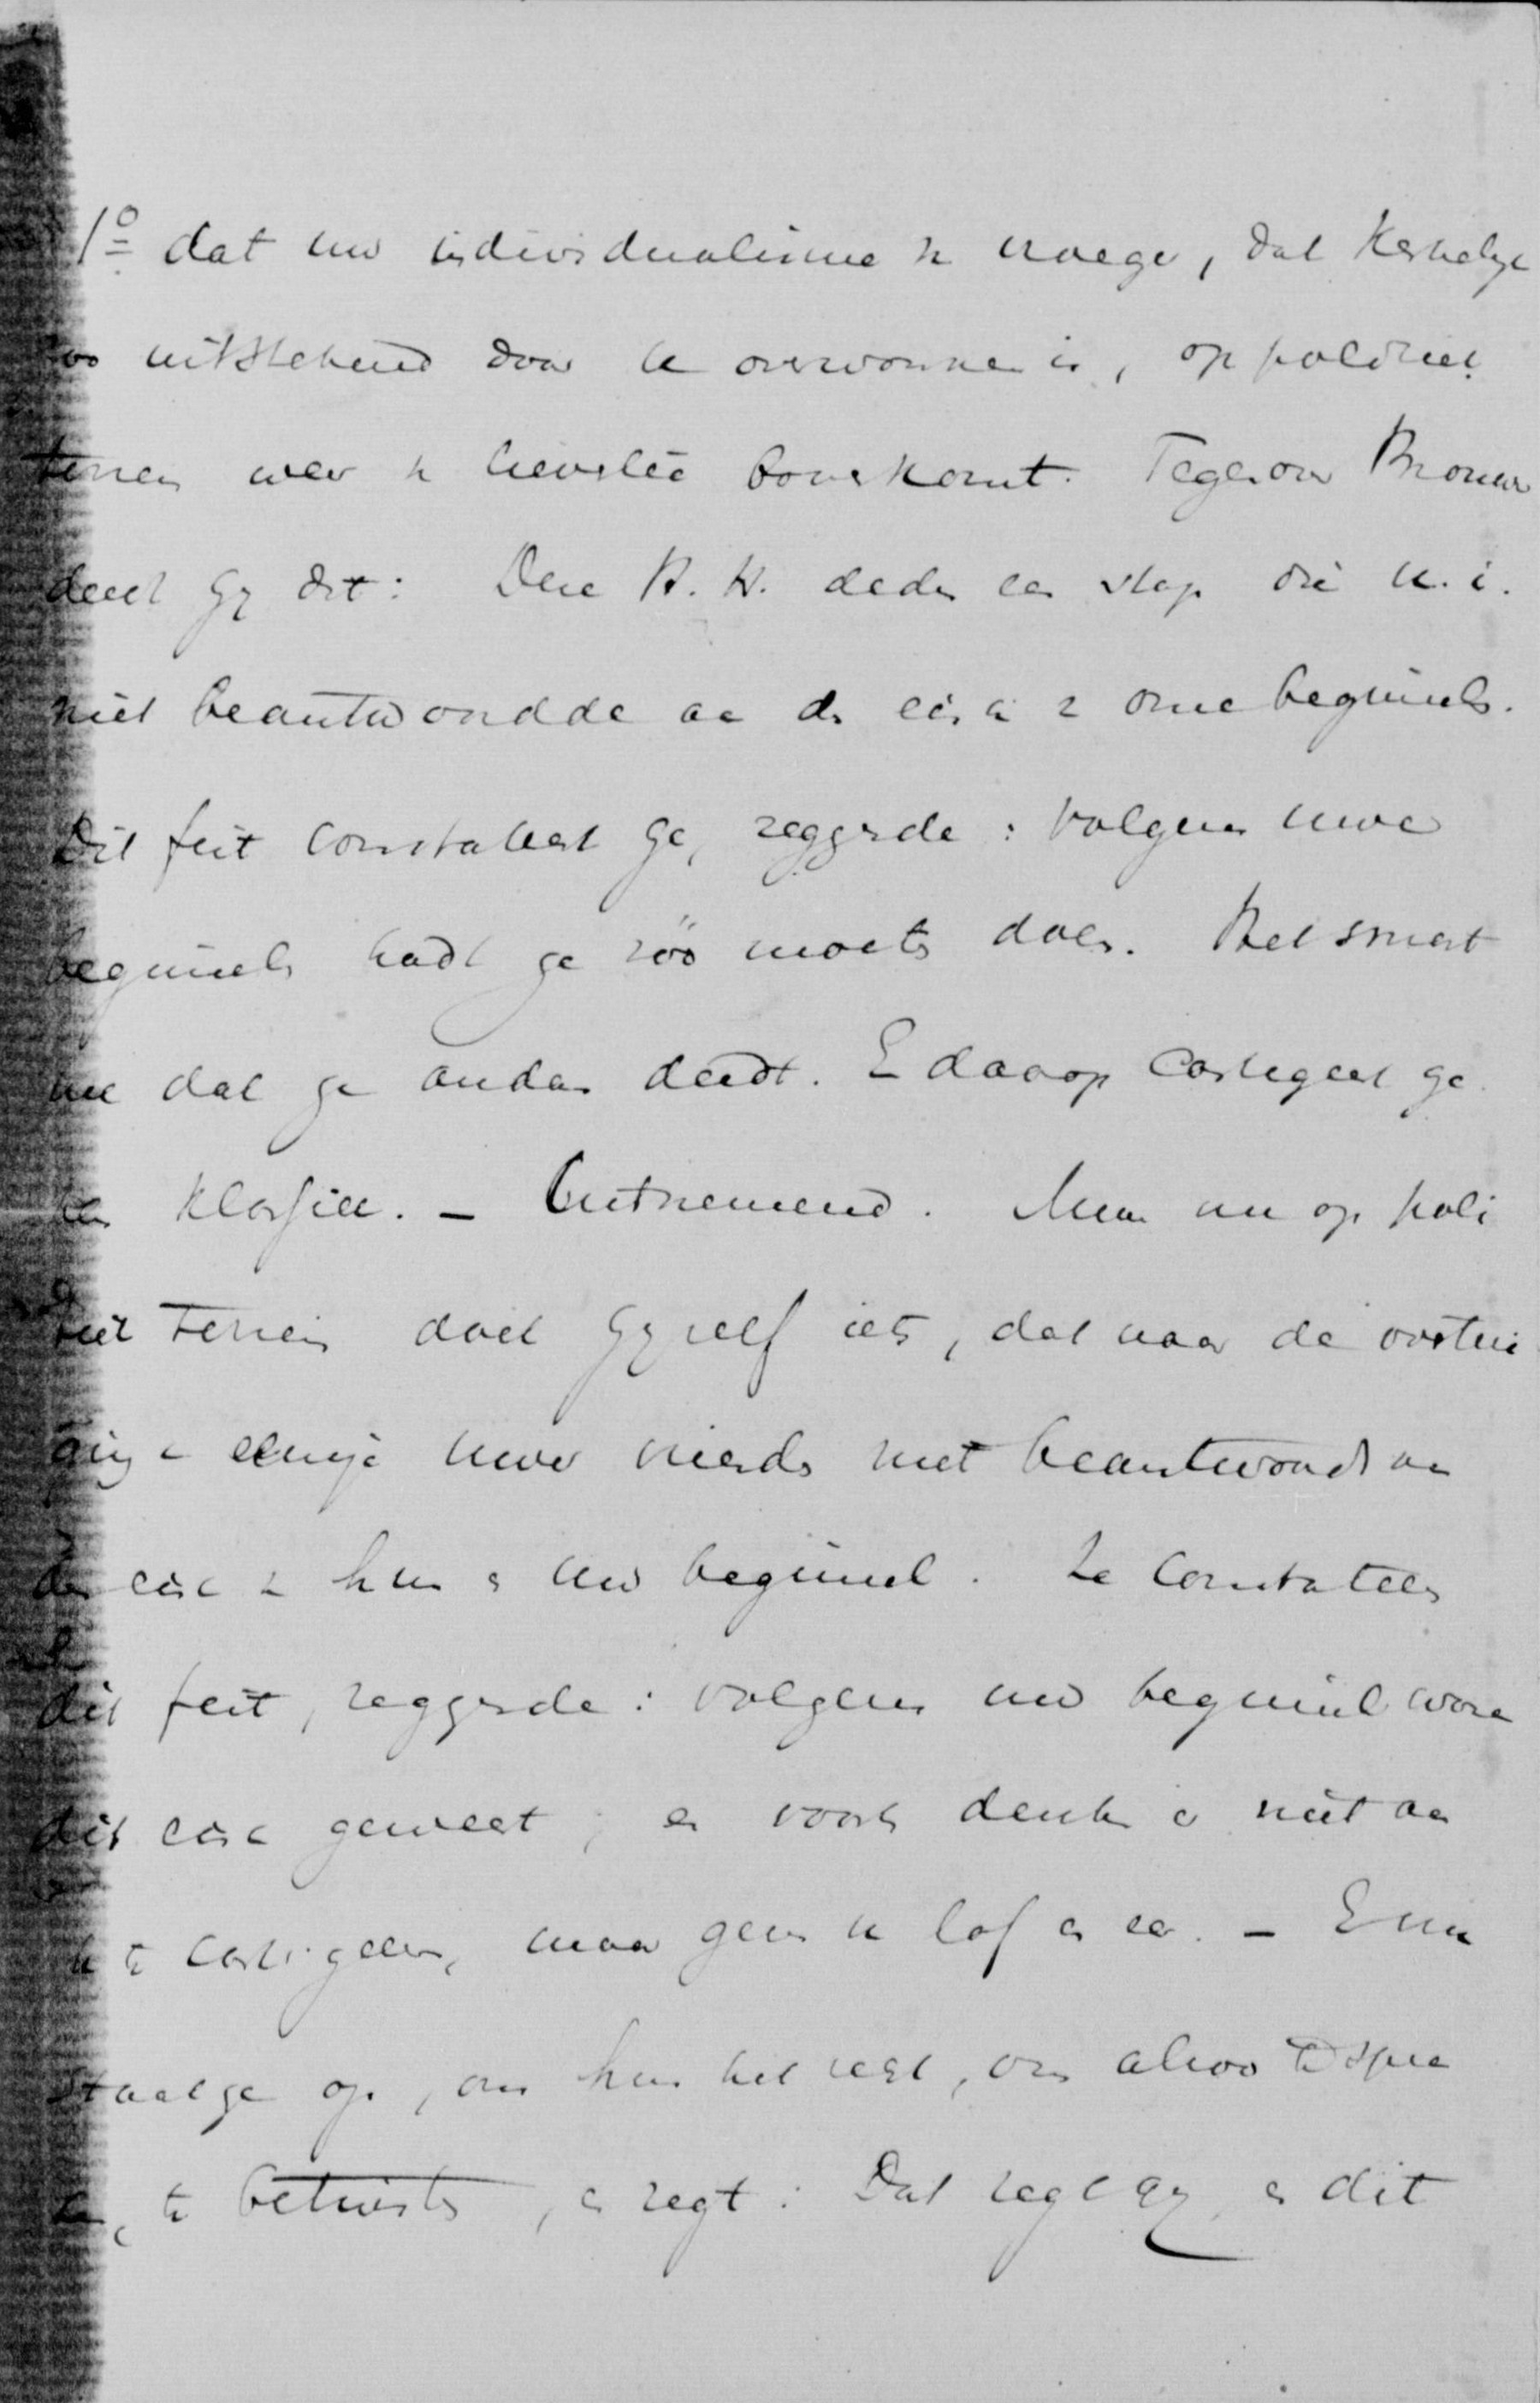 1º dat uw individualisme v. vroeger, dat Kerkelijk
zoo uitstekend door U overwonnen is, op politiek
terrein weer v. bovenkomt. Tegenover Brouwer
deedt gy dit: Deze K. deden een stap die u. i.
niet beantwoordde aan den eisch v. onze beginsels.
Dit feit constateert ge, zeggende: volgens uwe
beginsels hadt ge zóó moeten doen. Het smart
me dat ge anders deedt. En daarop castigeert ge
hen. – Uitnemend. Maar nu op poli
tiek terrein doet gy zelf iets, dat naar de overtui
ging v. eenige uwer vrienden niet beantwoordt aan
den eisch v. hun en uw beginsel. Ze constateeren
dit feit, zeggende: volgens uw beginsel ware
dit eisch geweest; en voorts denken ze niet aan
U te castigeeren, maar geven U lof en eer. – En nu
staat ge op, om hun het regt, om alzoo te spre
ken, te betwisten, en zegt: Dat zegt gy, en dit